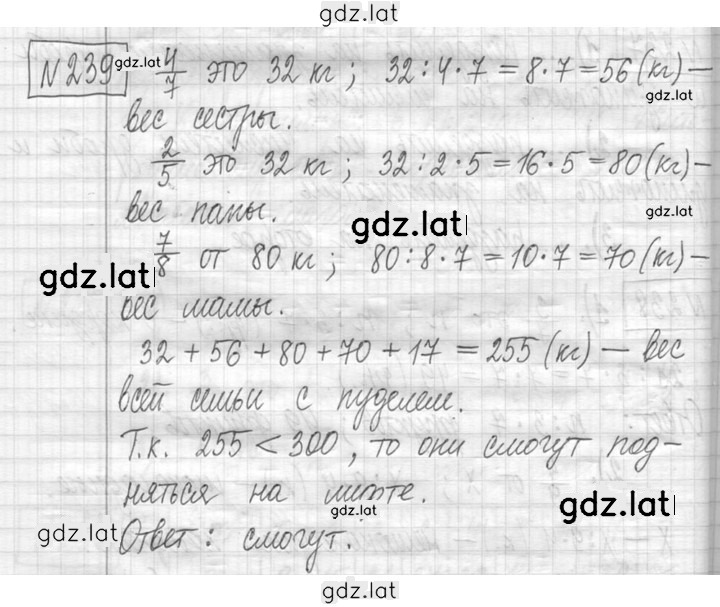 gdz.lat
№239 gdz.lat 4/7 это 32 кг; 32:4·7=8·7=56(кг)–
gdz.lat
вес сестры.
2/5 это 32 кг; 32:2·5=16·5=80(кг)–
вес папы. gdz.lat gdz.lat
7/8 от 80 кг; 80:8·7=10·7=70(кг)–
gdz.lat
вес мамы.
32+56+80+70+17=255(кг) – вес
всей семьи с пуделем.
Т.к. 255<300, то они смогут под-
няться на лифте.
gdz.lat gdz.lat
gdz.lat Ответ: смогут.
gdz.lat